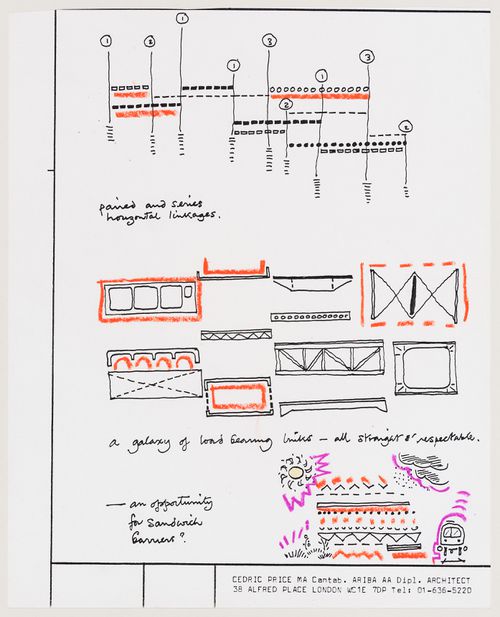 1
1 2 3 3
1 1
2 2
paired and series
horizontal linkages.
a galaxy of load bearing links – all straight & respectable.
— an opportunity
for sandwich
barriers?
CEDRIC PRICE MA Cantab. ARIBA AA Dipl. ARCHITECT
38 ALFRED PLACE LONDON WC1E 7DP Tel: 01-636-5220